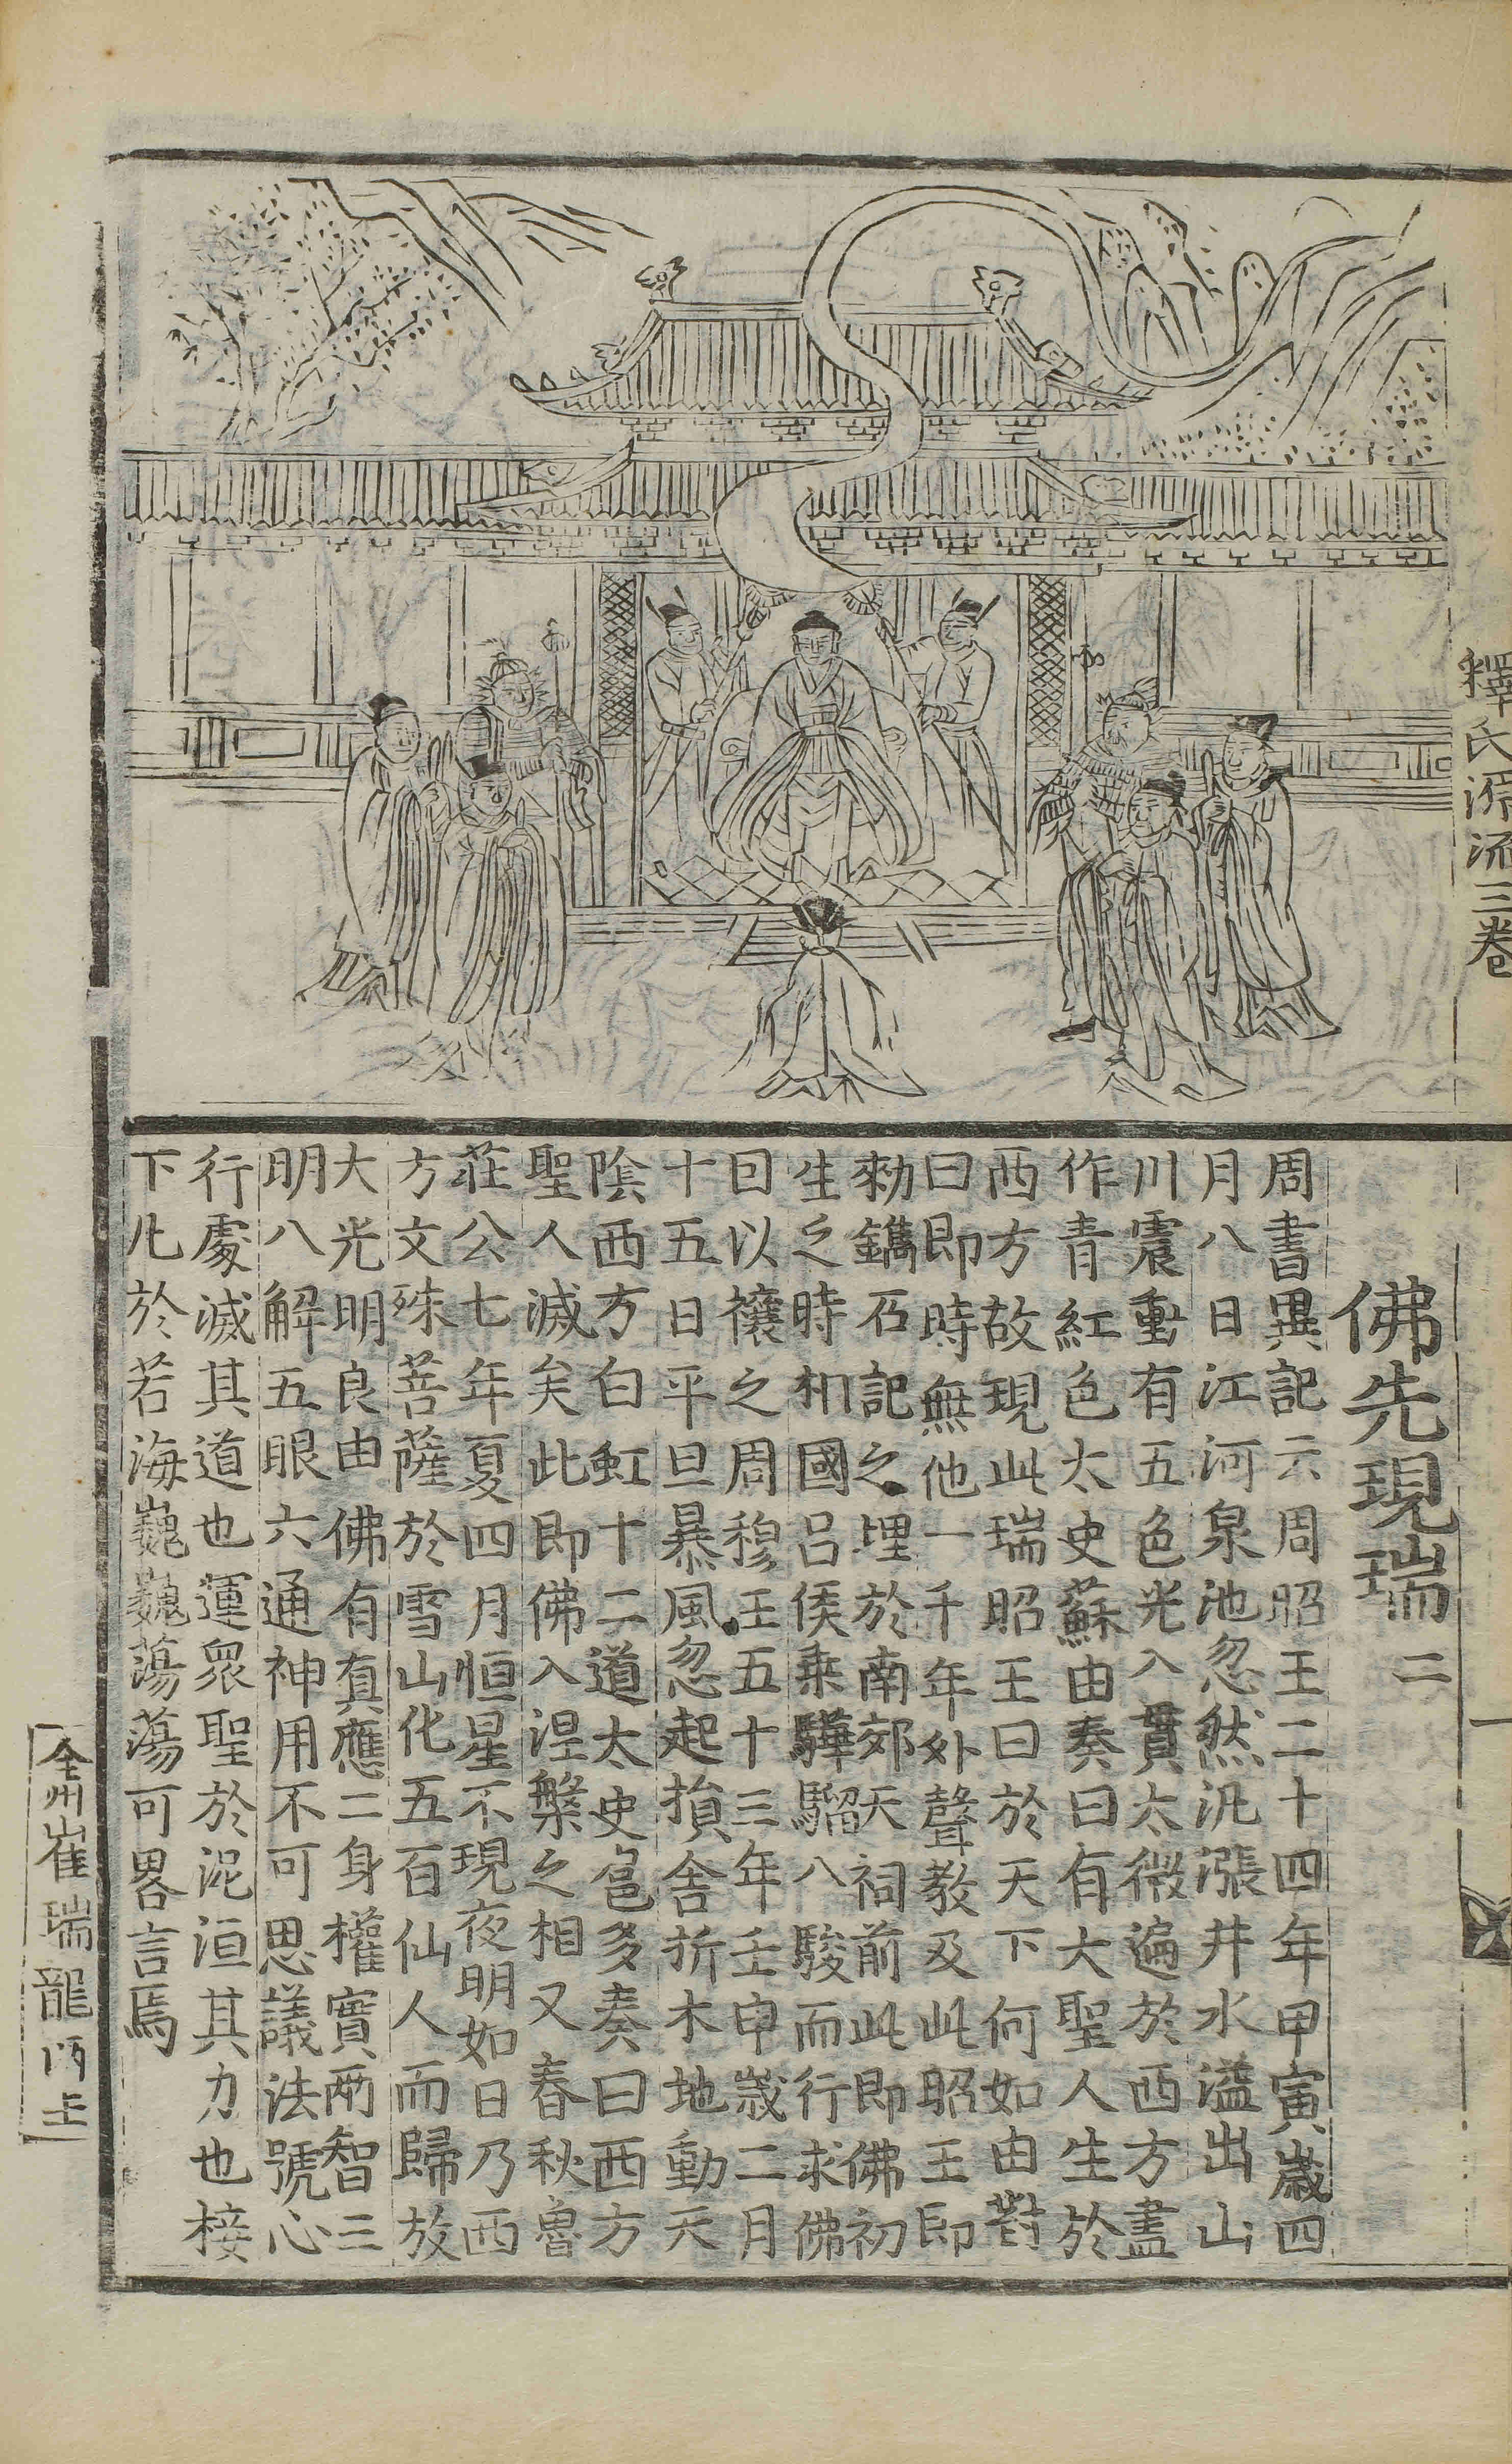 釋氏源流三卷
一
佛先現瑞 二
周書異記云周昭王二十四年甲寅歲四
月八日江河泉池忽然汎漲井水溢出山
川震動有五色光入貫太微遍於西方盡
作青紅色太史蘇由奏曰有大聖人生於
西方故現此瑞昭王曰於天下何如由對
曰即時無他一千年外聲教及此昭王即
勑鐫石記之埋於南郊天祠前此即佛初
生之時相國呂侯乗驊騮八駿而行求佛
回以禳之周穆王五十三年壬申歲二月
十五日平旦暴風忽起損舍折木地動天
陰西方白虹十二道太史扈多奏曰西方
聖人滅矣此即佛入涅槃之相又春秋魯
莊公七年夏四月恒星不現夜明如日乃西
方文殊菩薩於雪山化五百仙人而歸放
大光明良由佛有真應二身權實兩智三
明八解五眼六通神用不可思議法號心
行處滅其道也運衆聖於泥洹其力也接
下凡於若海巍巍蕩蕩可畧言焉
全州崔瑞龍